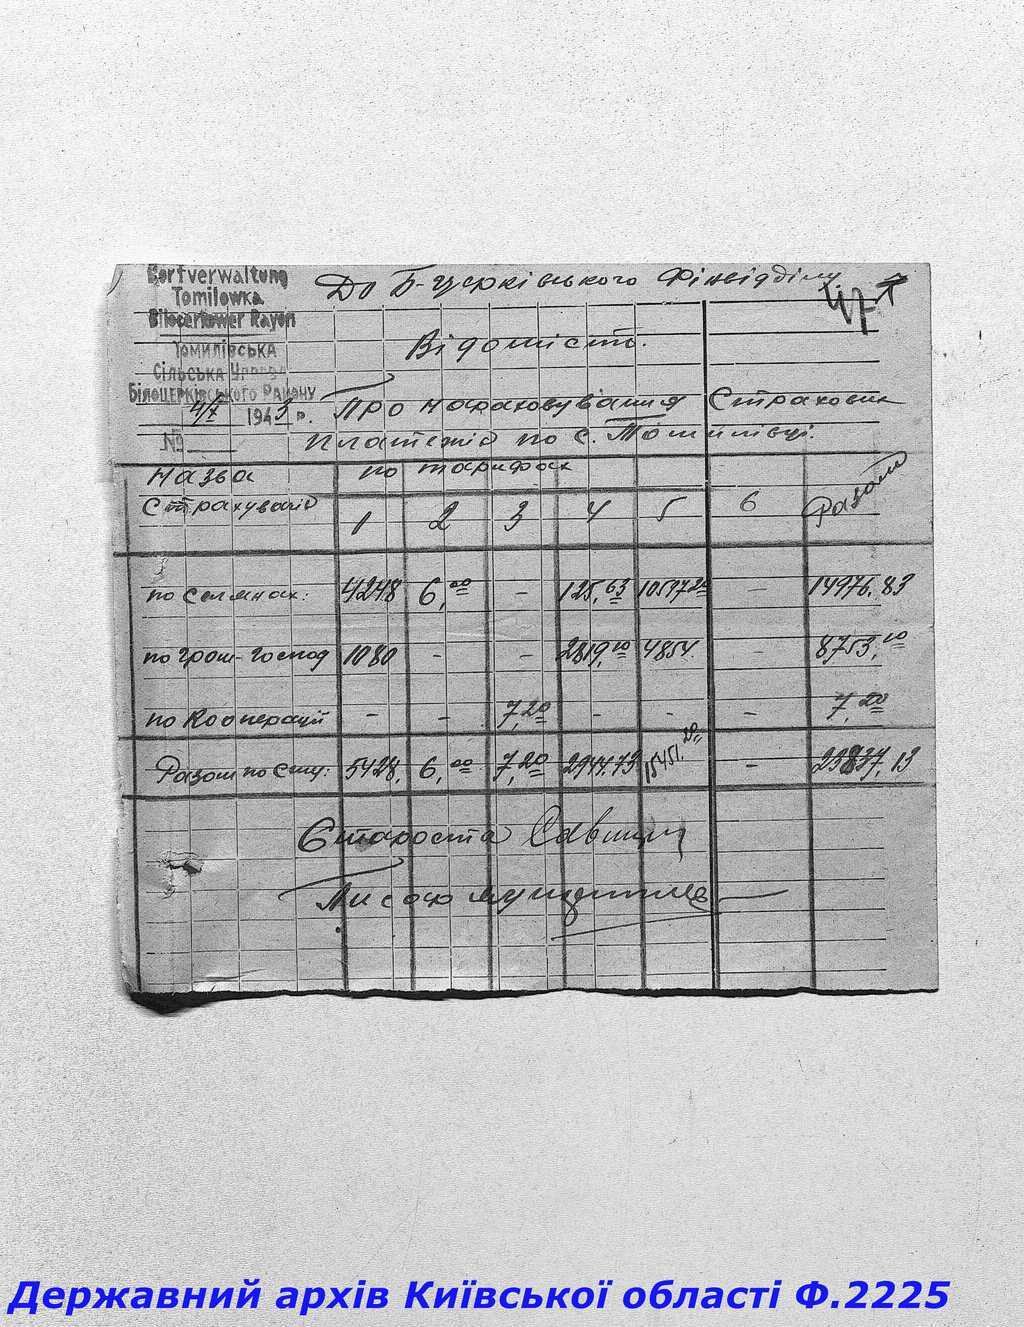 Dorfverwaltung
Tomilowka
Bilocerkower Rayon
Томилівська
Сільська Управа
Білоцерківського Району
4/X 1943 р.
№
До Б-Церківського Фінвідділу
47
Відомість.
Про нараховування Страхових
платежів по с. Томилівці.
Назва по тарифах
Страхувань 1 2 3 4 5 6 Разом
по селянах: 4248 6,00 - 125,63 10597,20 - 14976,83
по гром-господ 1080 - - 2819,10 4854 - 8753,10
по Кооперації - - 7,20 - - - 7,20
Разом по селу: 5428, 6,00 7,20 2944,73 15451,20 - 23837,13
Староста
Державний архів Київської області Ф.2225